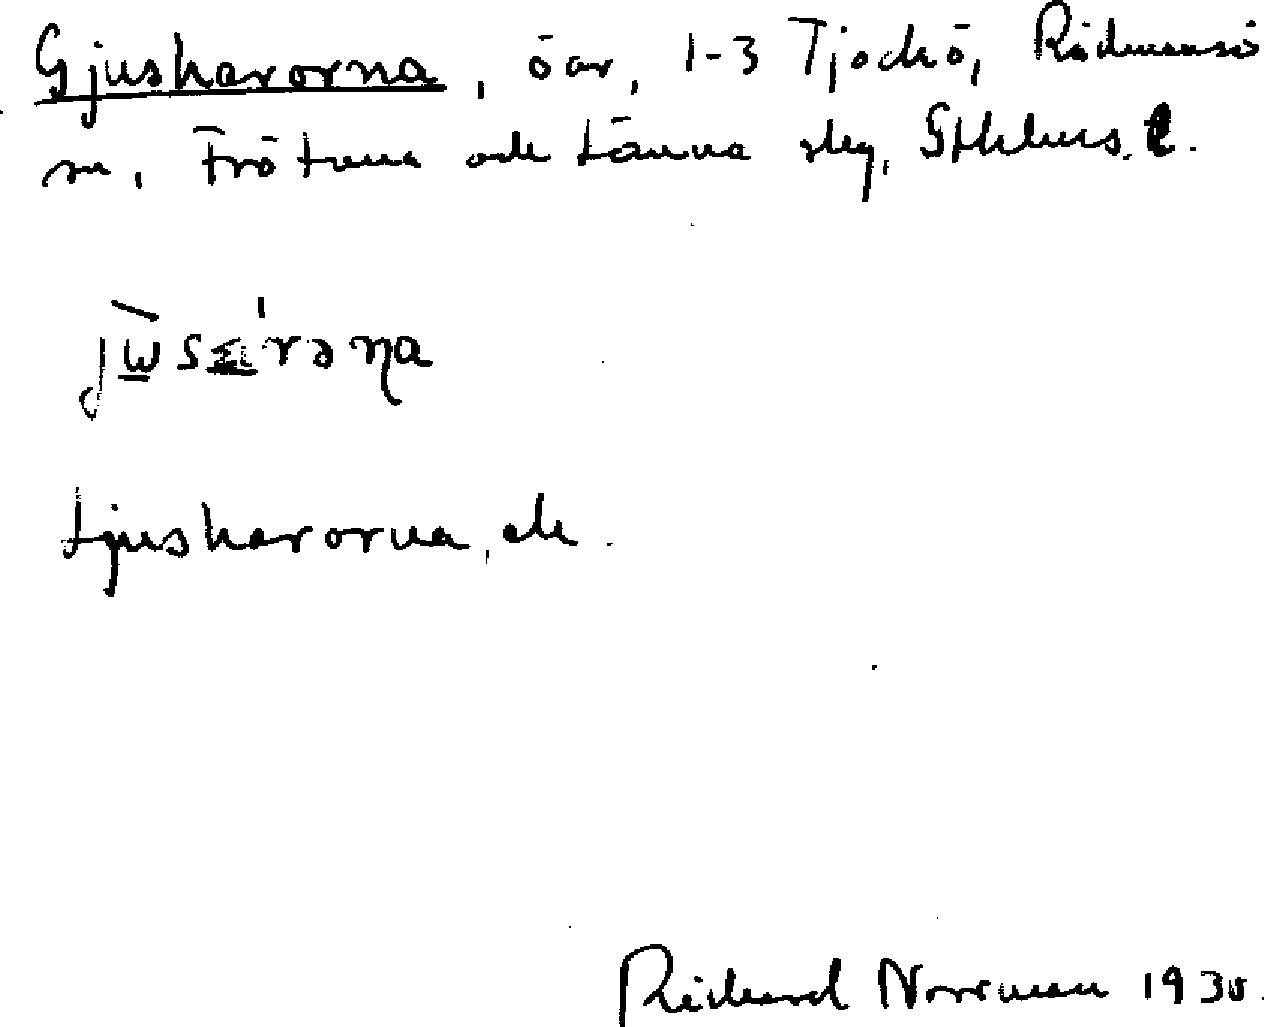 Gjuskarorna, öar, 1-3 Tjockö, Rådmansö
sn, Frötuna och Länna skg, Sthlms l.
Ljuskarorna, ek.
Rickard Norrman 1930.